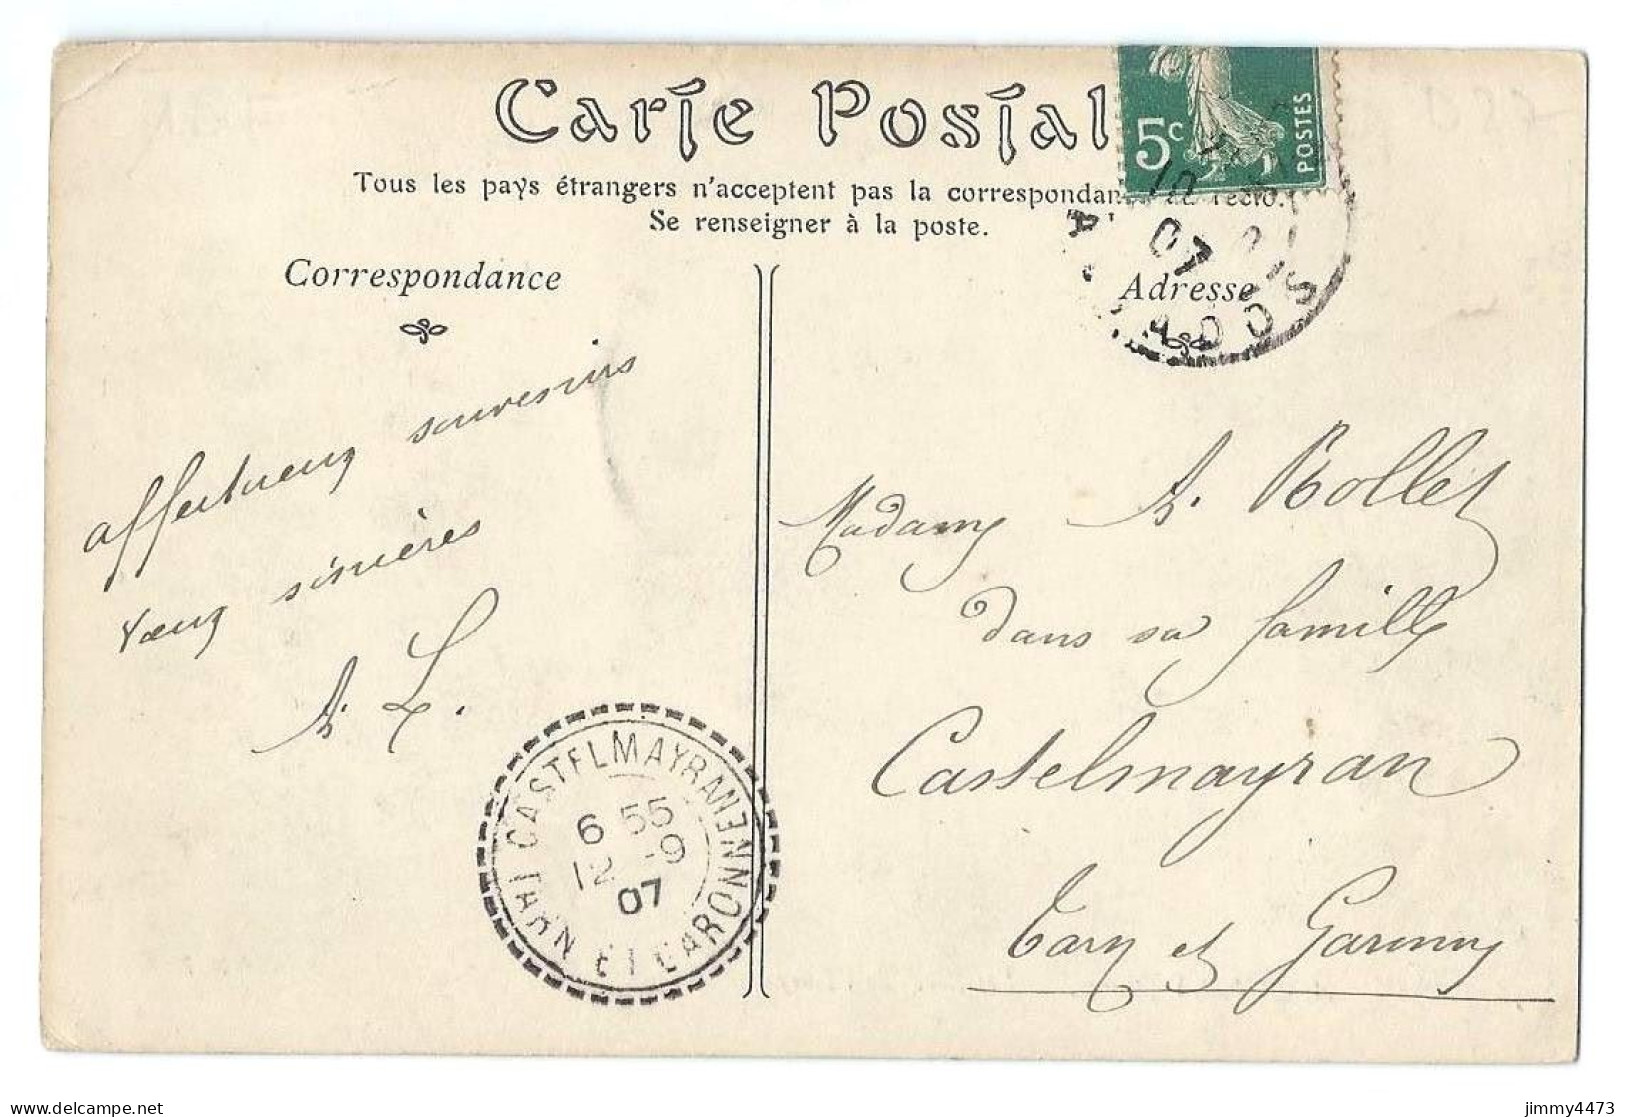 Carte Postale
5c
POSTES
Tous les pays étrangers n'acceptent pas la correspondance au recto.
Se renseigner à la poste.
07
Correspondance
Adresse
affectueux souvenirs
vœux sincères
A. L.
Madame A. Rollet
dans sa famille
Castelmayran
Tarn et Garonne
CASTELMAYRAN
6 55
12 -9
07
TARN ET GARONNE
jimmy4473